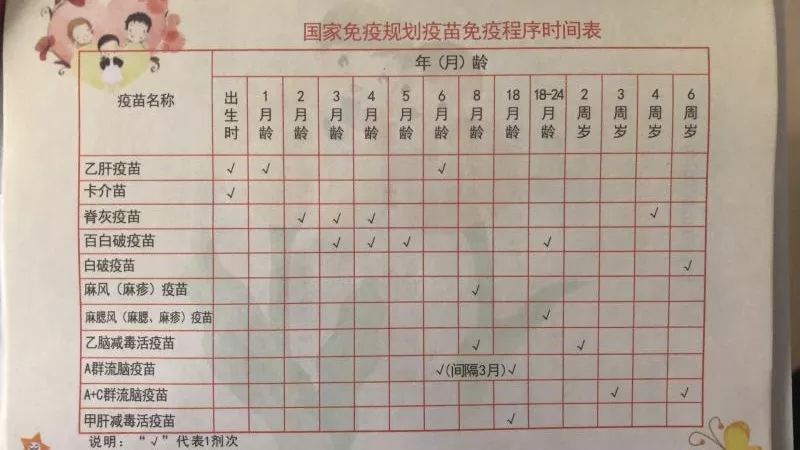 国家免疫规划疫苗免疫程序时间表
疫苗名称 年（月）龄
出生时 1月龄 2月龄 3月龄 4月龄 5月龄 6月龄 8月龄 18月龄 18-24月龄 2周岁 3周岁 4周岁 6周岁
乙肝疫苗 √ √ √
卡介苗 √
脊灰疫苗 √ √ √ √
百白破疫苗 √ √ √ √
白破疫苗 √
麻风（麻疹）疫苗 √
麻腮风（麻腮、麻疹）疫苗 √
乙脑减毒活疫苗 √ √
A群流脑疫苗 √(间隔3月)√
A+C群流脑疫苗 √ √
甲肝减毒活疫苗 √
说明：“√”代表1剂次